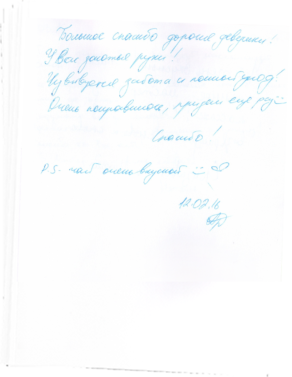 Большое спасибо дорогие девушки!
У Вас золотые руки!
Чувствуется забота и полный уход!
Очень понравилось, придем ещё раз
Спасибо!
P.S. чай очень вкусный
12.07.16